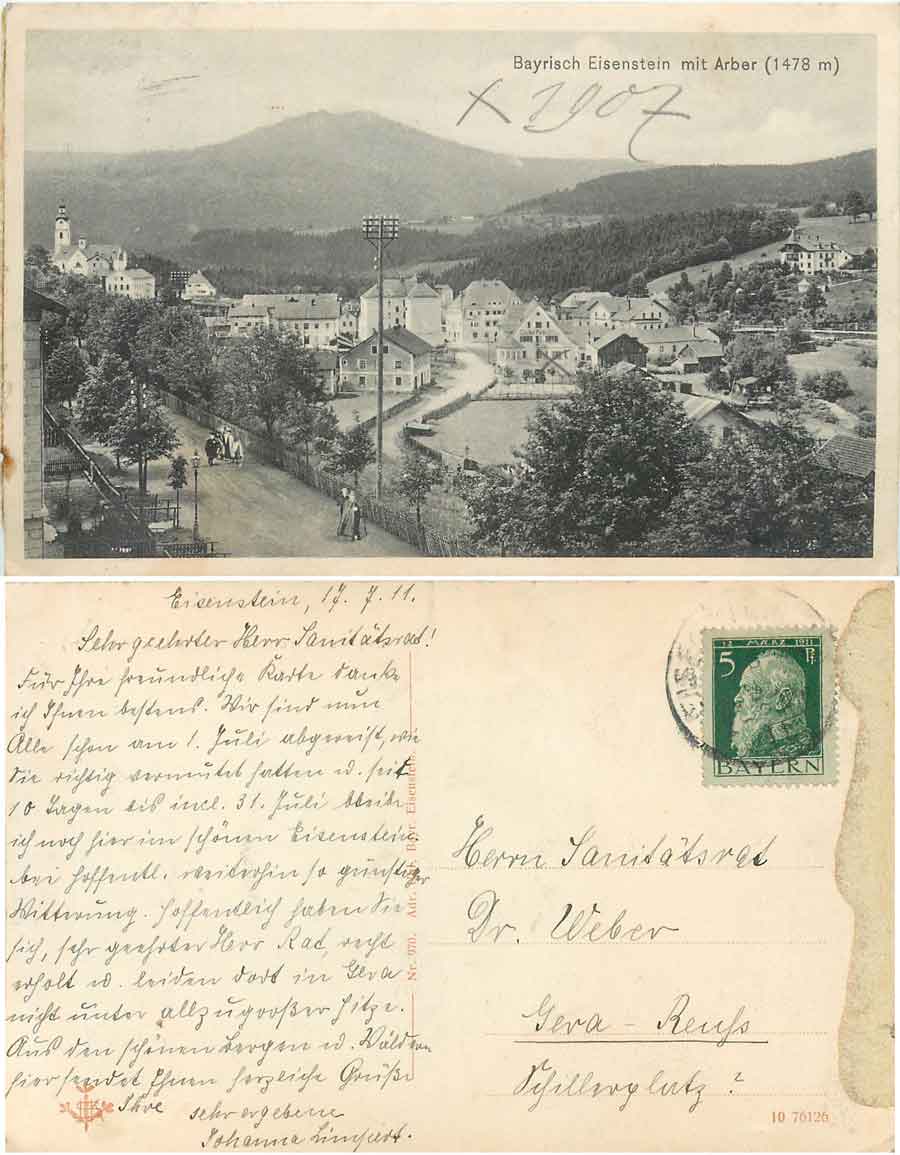 Bayrisch Eisenstein mit Arber (1478 m)
x 1907
Eisenstein, 17. 7. 11.
Sehr geehrter Herr Sanitätsrat!
Für Ihre freundliche Karte danke
ich Ihnen bestens. Wir sind nun
Alle schon am 1. Juli abgereist, wie
Sie richtig vermutet hatten u. seit
10 Tagen bis incl. 31. Juli bleibe
ich noch hier im schönen Eisenstein
bei hoffentl. weiterhin so günstiger
Witterung. Hoffentlich haben Sie
sich, sehr geehrter Herr Rat, recht
erholt u. leiden dort in Gera
nicht unter allzugroßer Hitze.
Aus den schönen Bergen u. Wäldern
hier sendet Ihnen herzliche Grüße
Ihre sehr ergebene
Johanna
Nr. 970.
Eisenstein
12 MÄRZ 1911
5 Pf.
BAYERN
Herrn Sanitätsrat
Dr. Weber
Gera - Reuß
Schillerplatz ?
10 76126